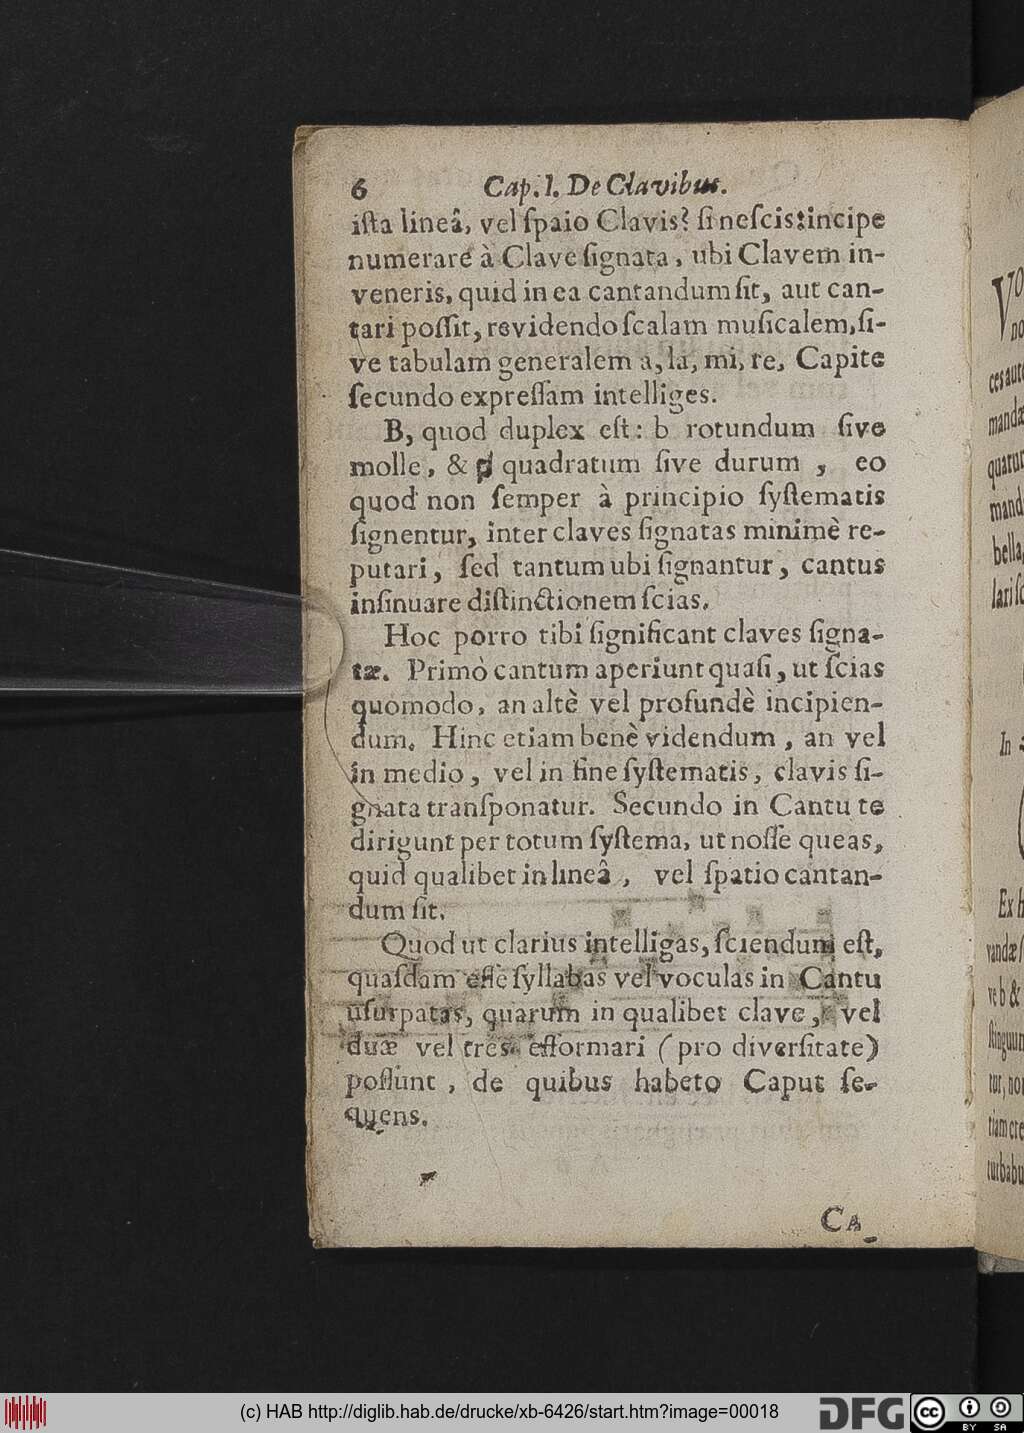 6 Cap. 1. De Clavibus.
iſta lineâ, vel ſpaio Clavis? ſi neſcis: incipe
numerare à Clave ſignata, ubi Clavem in-
veneris, quid in ea cantandum ſit, aut can-
tari poſſit, revidendo ſcalam muſicalem, ſi-
ve tabulam generalem a, la, mi, re, Capite
ſecundo expreſſam intelliges.
B, quod duplex eſt: b rotundum ſive
molle, & quadratum ſive durum, eo
quod non ſemper à principio ſyſtematis
ſignentur, inter claves ſignatas minimè re-
putari, ſed tantum ubi ſignantur, cantus
inſinuare diſtinctionem ſcias.
Hoc porro tibi ſignificant claves ſigna-
tæ. Primò cantum aperiunt quaſi, ut ſcias
quomodo, an altè vel profundè incipien-
dum. Hinc etiam benè videndum, an vel
in medio, vel in fine ſyſtematis, clavis ſi-
gnata tranſponatur. Secundo in Cantu te
dirigunt per totum ſyſtema, ut noſſe queas,
quid qualibet in lineâ, vel ſpatio cantan-
dum ſit.
Quod ut clarius intelligas, ſciendum eſt,
quaſdam eſſe ſyllabas vel voculas in Cantu
uſurpatas, quarum in qualibet clave, vel
duæ vel tres efformari (pro diverſitate)
poſſunt, de quibus habeto Caput ſe-
quens.
CA
Vo
no
ces aut
mandæ
quarun
mand
bella,
lari ſc
In
Ex h
vandæ ſ
ve b &
ſtinguun
tur, non
tiam cre
turbabu
(c) HAB http://diglib.hab.de/drucke/xb-6426/start.htm?image=00018
DFG
cc
BY SA